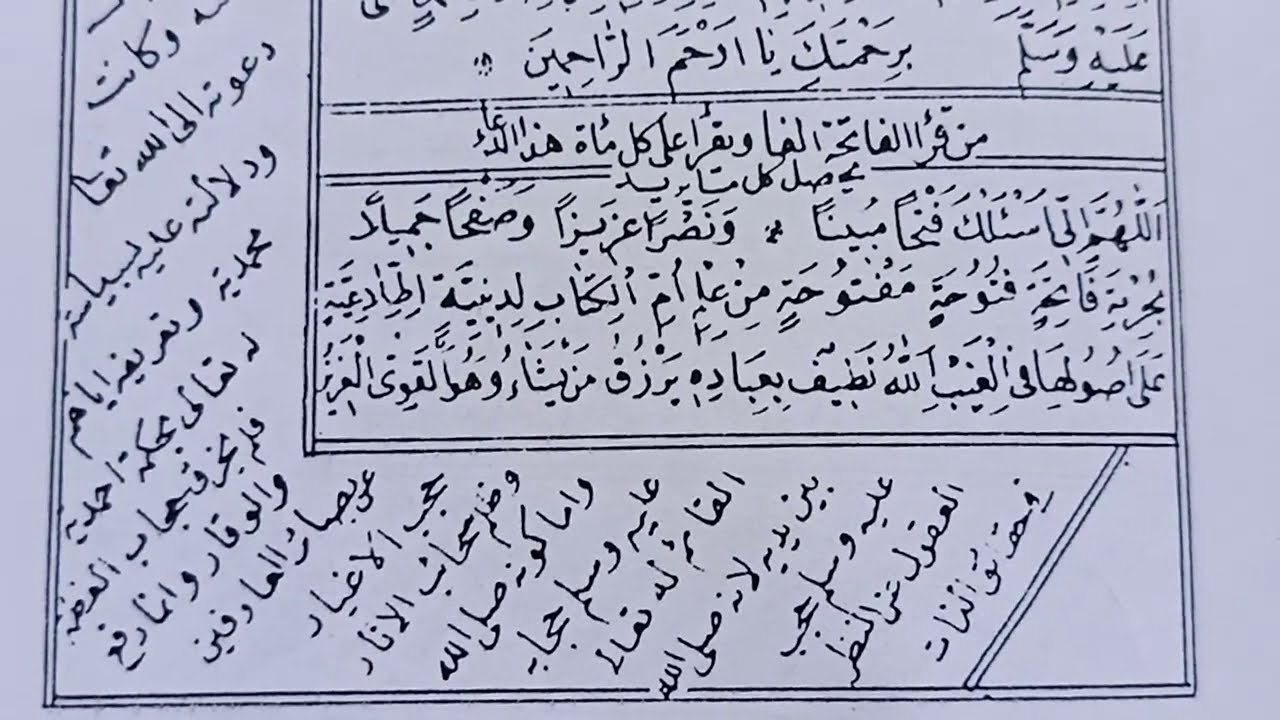 عَلَيْهِ وَسَلَّمَ بِرَحْمَتِكَ يَا اَرْحَمَ الرَّاحِمِينَ
من قرأ الفاتحة الفا ويقرأ على كل مأة هذا الدعاء
يحصل كل مشاء يريد
اَللّٰهُمَّ اِنِّى اَسْئَلُكَ فَتْحًا مُبِينًا وَنَصْرًا عَزِيزًا وَصَفْحًا جَمِيلاً
فَاتِحَةٍ فُتُوحَةٍ مَفْتُوحَةٍ مِنْ اُمِّ الْكِتَابِ
عَلَى اُصُولِهَا فِى الْغَيْبِ اَللّٰهُ لَطِيفٌ بِعِبَادِهِ يَرْزُقُ مَنْ يَشَاءُ وَهُوَ الْقَوِىُّ الْعَزِيزُ
وكانت
دعوته الى الله تعا
ودلالته عليه
محمدية وتعريفه اياهم
له تعالى بحكمة احمدية
فلم يخرق حجاب
والوقار وانما رفع
عن بصائر العارفين
حجب الاغيار
الاثار
واما كونه صلى الله
عليه وسلم حجابه
القائم له تعالى
بين يديه لانه صلى الله
عليه وسلم حجب
العقول عن النظر
الذات